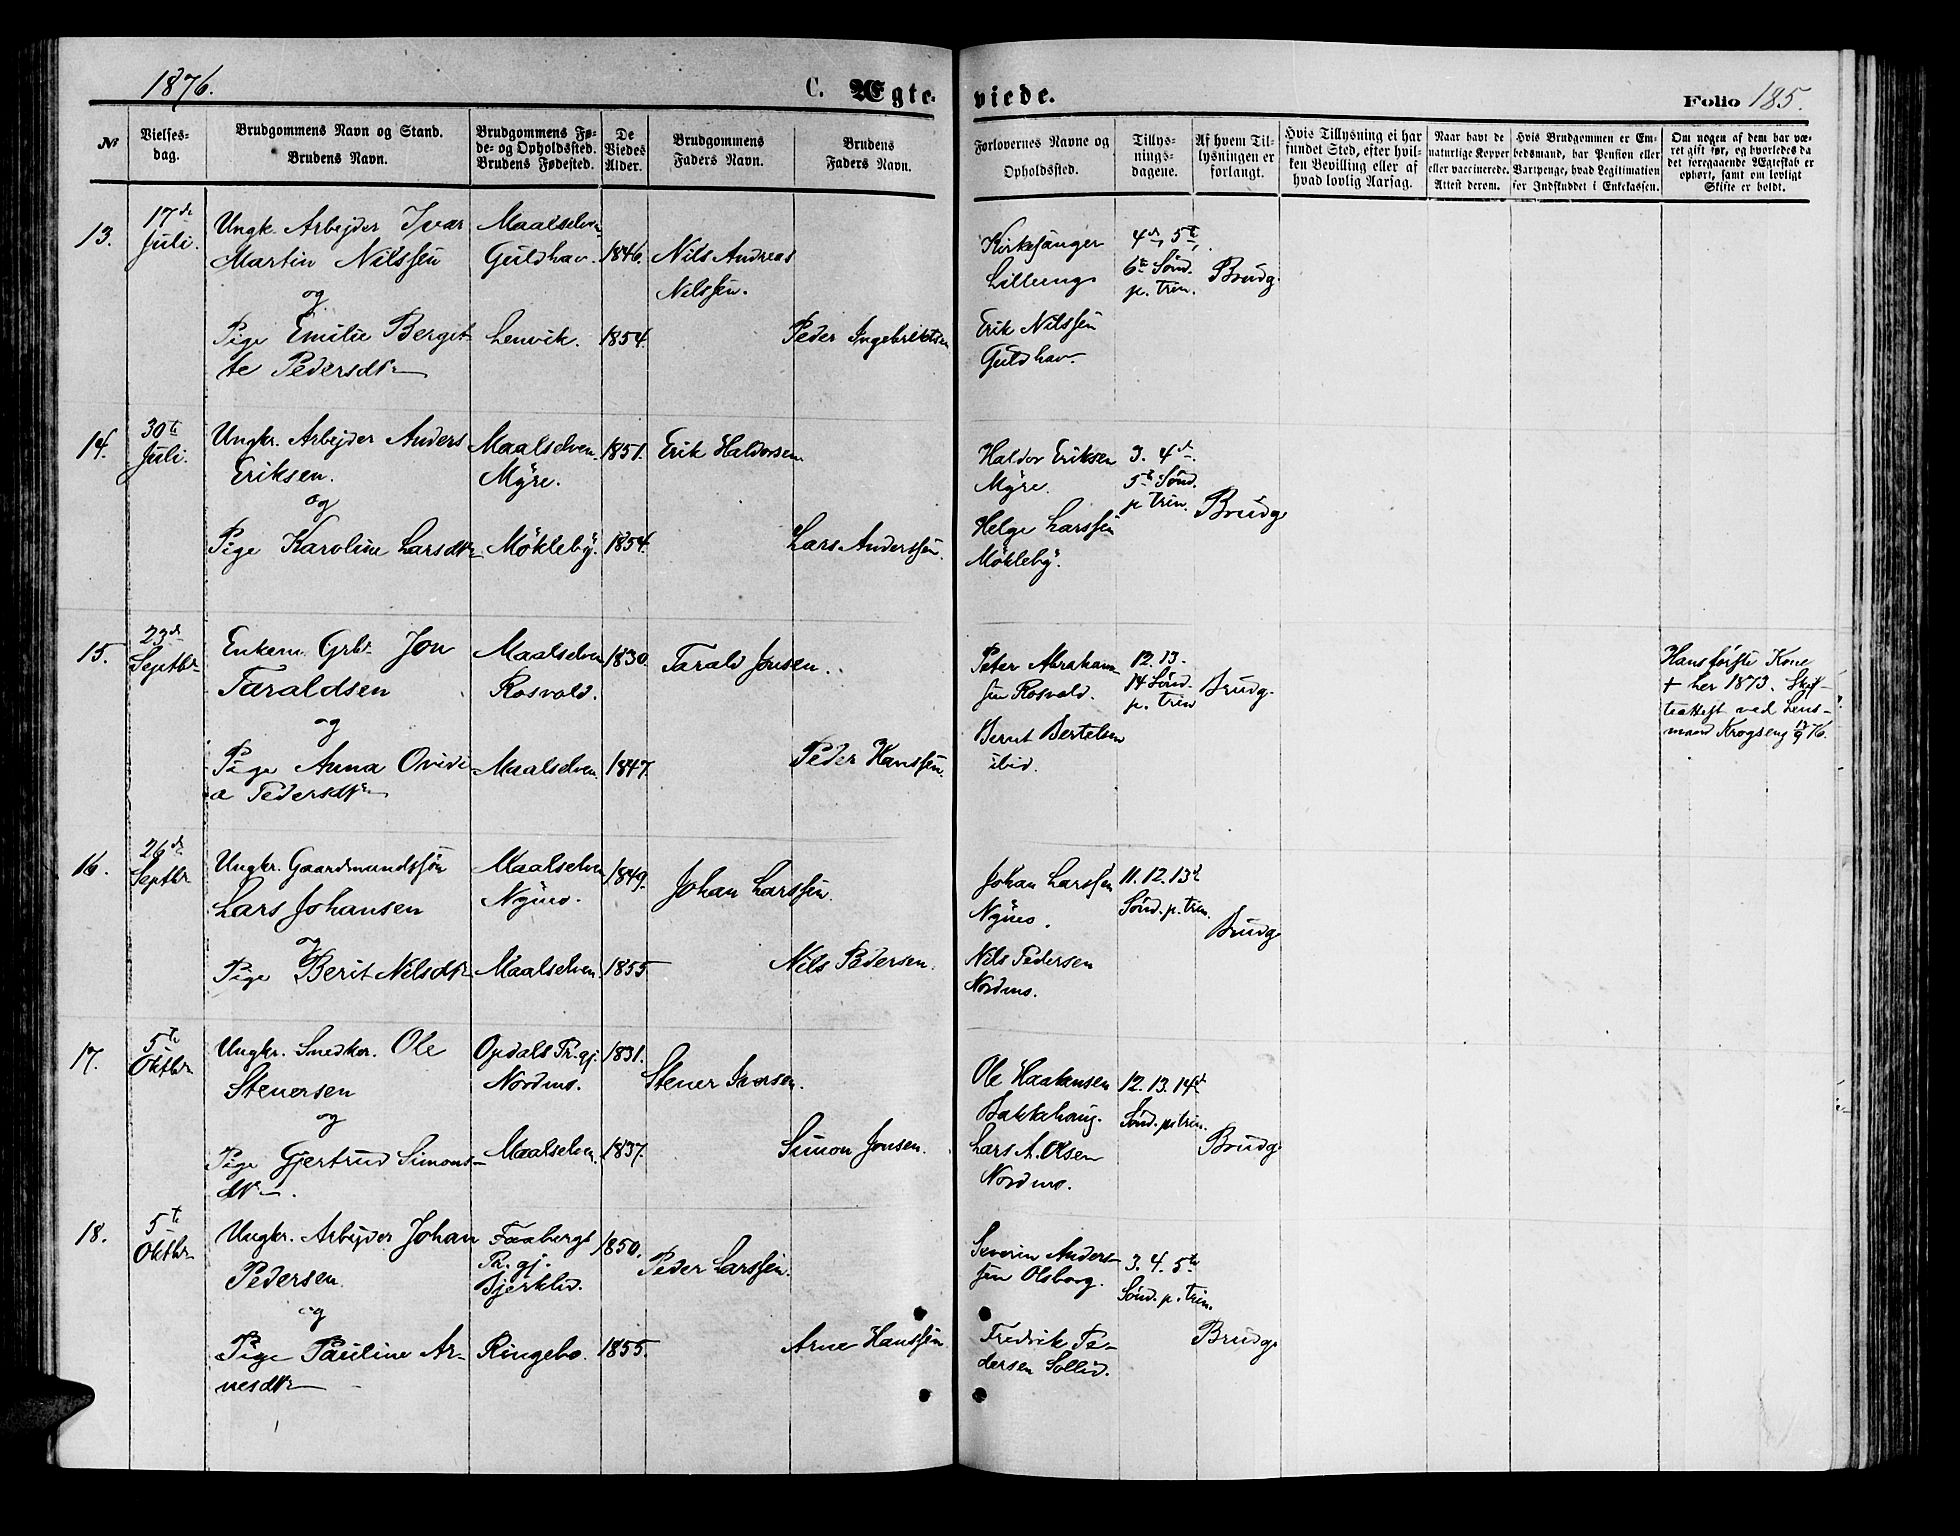 1876.
C. Ægte-
viede.
Folio 185.
№
Vielses-
dag.
Brudgommens Navn og Stand.
Brudens Navn.
Brudgommens Fø-
de- og Opholdsted.
Brudens Fødested.
De
Viedes
Alder.
Brudgommens
Faders Navn.
Brudens
Faders Navn.
Forlovernes Navne og
Opholdsted.
Tillys-
nings-
dagene.
Af hvem Til-
lysningen er
forlangt.
Hvis Tillysning ei har
fundet Sted, efter hvil-
ken Bevilling eller af
hvad lovlig Aarsag.
Naar havt de
naturlige Kopper
eller vaccinerede.
Attest derom.
Hvis Brudgommen er Em-
bedsmand, har Pension eller
Vartpenge, hvad Legitimation
for Indskuddet i Enkekassen.
Om nogen af dem har væ-
ret gift før, og hvorledes da
det foregaaende Ægteskab er
ophørt, samt om lovligt
Skifte er holdt.
13.
17de
Juli.
Ungk. Arbejder Ivar
Martin Nilssen
og
Pige Emilie Berget-
te Pedersdtr
Maalselven
Guldhav.
Lenvik.
1846.
1854.
Nils Andreas
Nilssen.
Peder Ingebriktsen
Kirkesanger
Lilleeng
Erik Nilssen
Guldhav.
4de, 5te,
6te Sønd.
p. trin.
Brudg.
14.
30te
Juli.
Ungkr. Arbejder Anders
Eriksen.
og
Pige Karoline Larsdtr
Maalselven.
Myre.
Møkleby.
1851.
1854.
Erik Haldorsen
Lars Anderssen.
Haldor Eriksen
Myre.
Helge Larssen
Møkleby.
3. 4de
5te Sønd.
p. trin.
Brudg.
15.
23de
Septbr
Enkem. Grbr. Jon
Taraldsen
og
Pige Anna Ovidi-
a Pedersdtr
Maalselven
Rosvold.
Maalselven
1830.
1847.
Tarald Jonsen.
Peder Hanssen.
Peter Abraham-
sen Rosvold.
Bernt Bertelsen
ibid.
12. 13.
14 Sønd.
p. trin
Brudg.
Hans første Kone
+ her 1873. Skif-
teattest ved Lens-
mand Krogseng 17/9 76.
16.
26de
Septbr
Ungkr. Gaardmandssøn
Lars Johansen
og
Pige Berit Nilsdtr
Maalselven
Nymo.
Maalselven.
1849.
1855
Johan Larssen.
Nils Pedersen.
Johan Larssen
Nymo.
Nils Pedersen
Nordmo.
11. 12. 13de
Sønd. p. trin.
Brudg.
17.
5te
Oktbr
Ungkr. Snedker. Ole
Stenersen
og
Pige Gjertrud Simons-
dtr.
Opdals Pr.gj.
Nordmo.
Maalselven.
1831.
1837.
Stener Iversen.
Simon Jonsen.
Ole Haakensen
Bakkehaug.
Lars A. Olsen
Nordmo.
12. 13. 14de
Sønd. p. trin.
Brudg.
18.
5te
Oktbr
Ungkr. Arbejder Johan
Pedersen.
og
Pige Pauline Ar-
nesdtr
Faabergs
Pr.gj.
Bjerklid.
Ringebo.
1850.
1855.
Peder Larssen.
Arne Hanssen
Severin Anders-
sen Olsborg.
Fredrik Pe-
dersen Sollid.
3. 4. 5te
Sønd. p. trin.
Brudg.